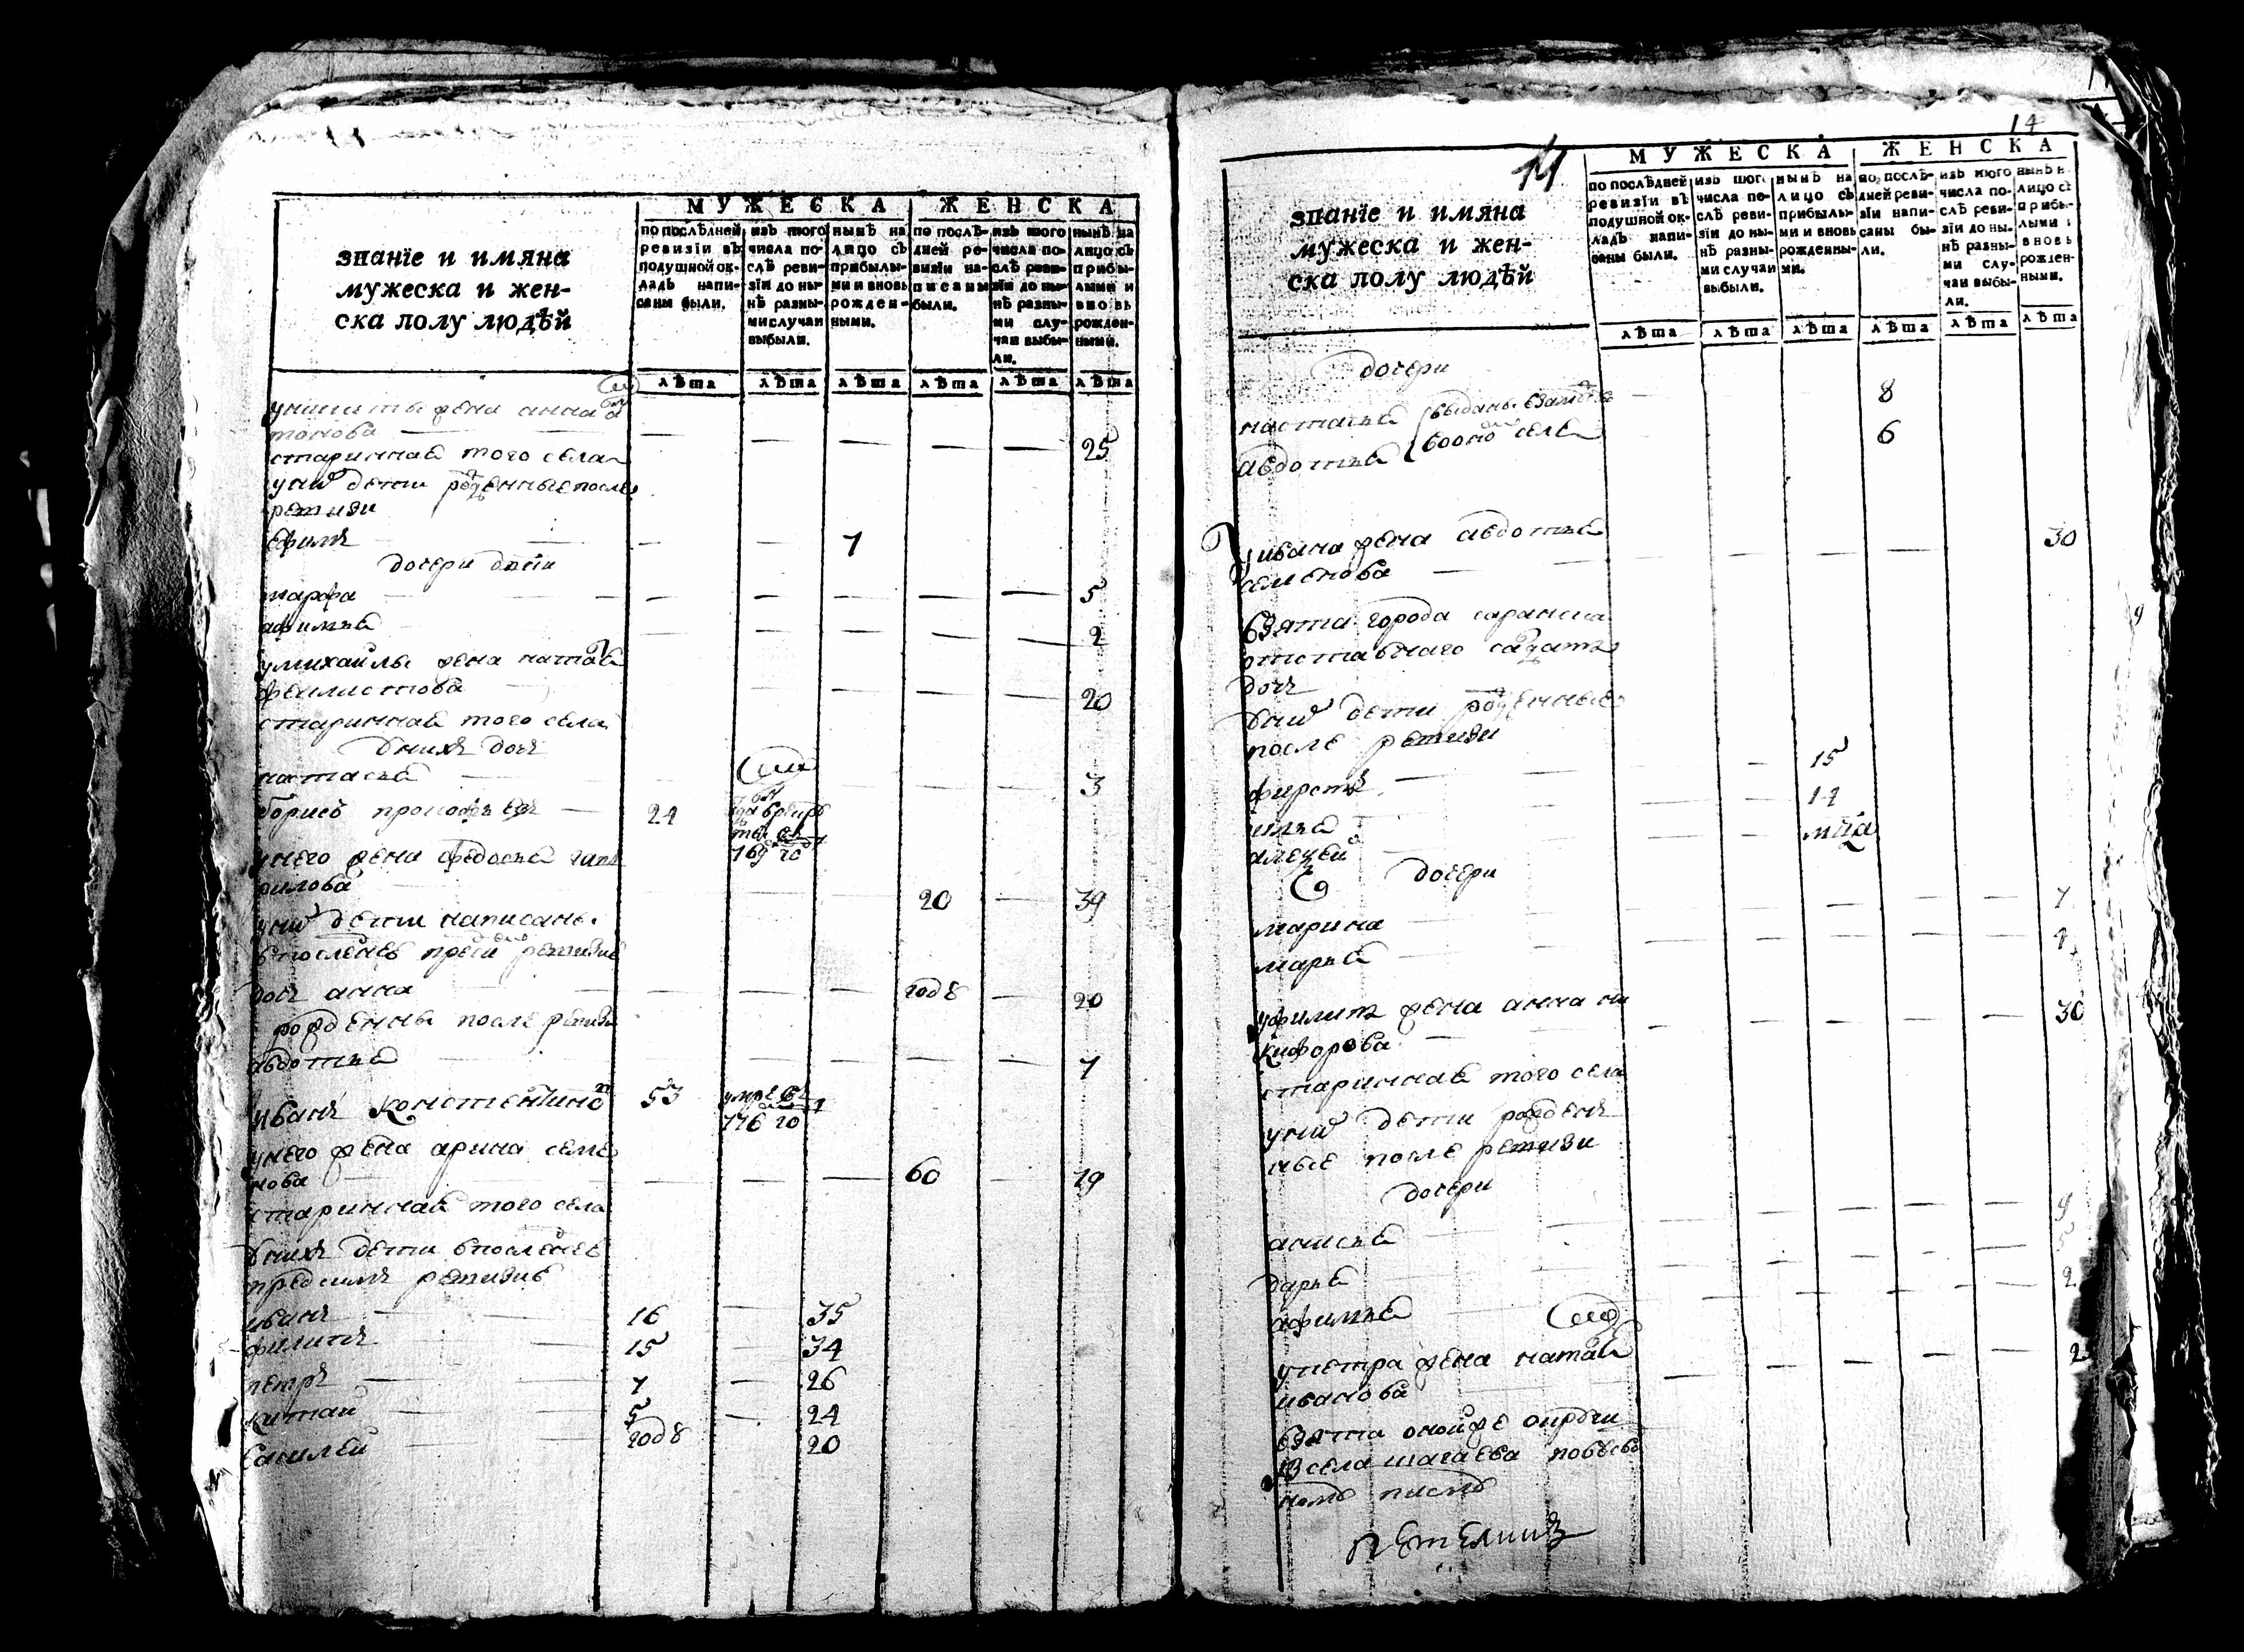 МУЖЕСКА ЖЕНСКА
званїе и имяна
мужеска и жен-
ска полу людѣй
по послѣдней
ревизіи въ
подушной ок-
ладъ напи-
саны были.
изъ того
числа по-
слѣ реви-
зіи до ны-
нѣ разны-
ми случаи
выбыли.
нынѣ на
лицо съ
прибылы-
ми и вновь
рожден-
ными.
по послѣ-
дней ре-
визіи на-
писаны
были.
изъ того
числа по-
слѣ реви-
зіи до ны-
нѣ разны-
ми слу-
чаи выбы-
ли.
нынѣ на
лицо съ
прибы-
лыми и
вновь
рожден-
ными.
лѣта лѣта лѣта лѣта лѣта лѣта
уникиты жена анна
тонова 25
стариннаѧ того села
униⷯ дети рожденные после
ревизи
ефимъ 7
дочери
марфа 5
афимьѧ 2
умихаилы жена наталь
феклистова 20
стариннаѧ того села
унихъ дочь
настасьѧ 3
борисъ прокофьевъ 24
унего жена федосьѧ гав
рилова 20 39
униⷯ дети написаны
впоследней пред ревизие
дочь анна году 20
рожденны после ревизи
авдотьѧ 7
иванъ констентиноⷡ 53 умре въ
776 го
унего жена арина семе
нова 60 79
стариннаѧ того села
унихъ дети впоследней
предсимъ ревизие
иванъ 16 35
филипъ 15 34
петръ 7 26
китаи 5 24
василеи году 20
14
14
МУЖЕСКА ЖЕНСКА
званїе и имяна
мужеска и жен-
ска полу людѣй
по послѣдней
ревизїи въ
подушной ок-
ладъ напи-
саны были.
изъ того
числа по-
слѣ реви-
зїи до ны-
нѣ разны-
ми случаи
выбыли.
нынѣ на
лицо съ
прибылы-
ми и вновь
рожденны-
ми.
по послѣ-
дней реви-
зїи напи-
саны бы-
ли.
изъ того
числа по-
слѣ реви-
зїи до ны-
нѣ разны-
ми слу-
чаи выбы-
ли.
нынѣ н
лицо съ
прибы-
лыми и
вновь
рожден-
ными.
лѣта лѣта лѣта лѣта лѣта лѣта
дочери
настасьѧ выданы взамуже 8
авдотьѧ вооноⷨ селе 6
уивана жена авдотьѧ 30
семенова
взята города саранска
отставнаго салдата
дочь
униⷯ дети рожденные
после ревизи
фирсъ 15
илья 14
алексеи
дочери
марина 7
марьѧ
уфилипа жена анна ни 30
кифорова
стариннаѧ того села
униⷯ дети рожден
ные после ревизи
дочери
анисьѧ 9
дарьѧ 5
афимьѧ 2
упетра жена наталь
иванова
взята оной же округи
изсела шагаева
номⷹ писмⷹ